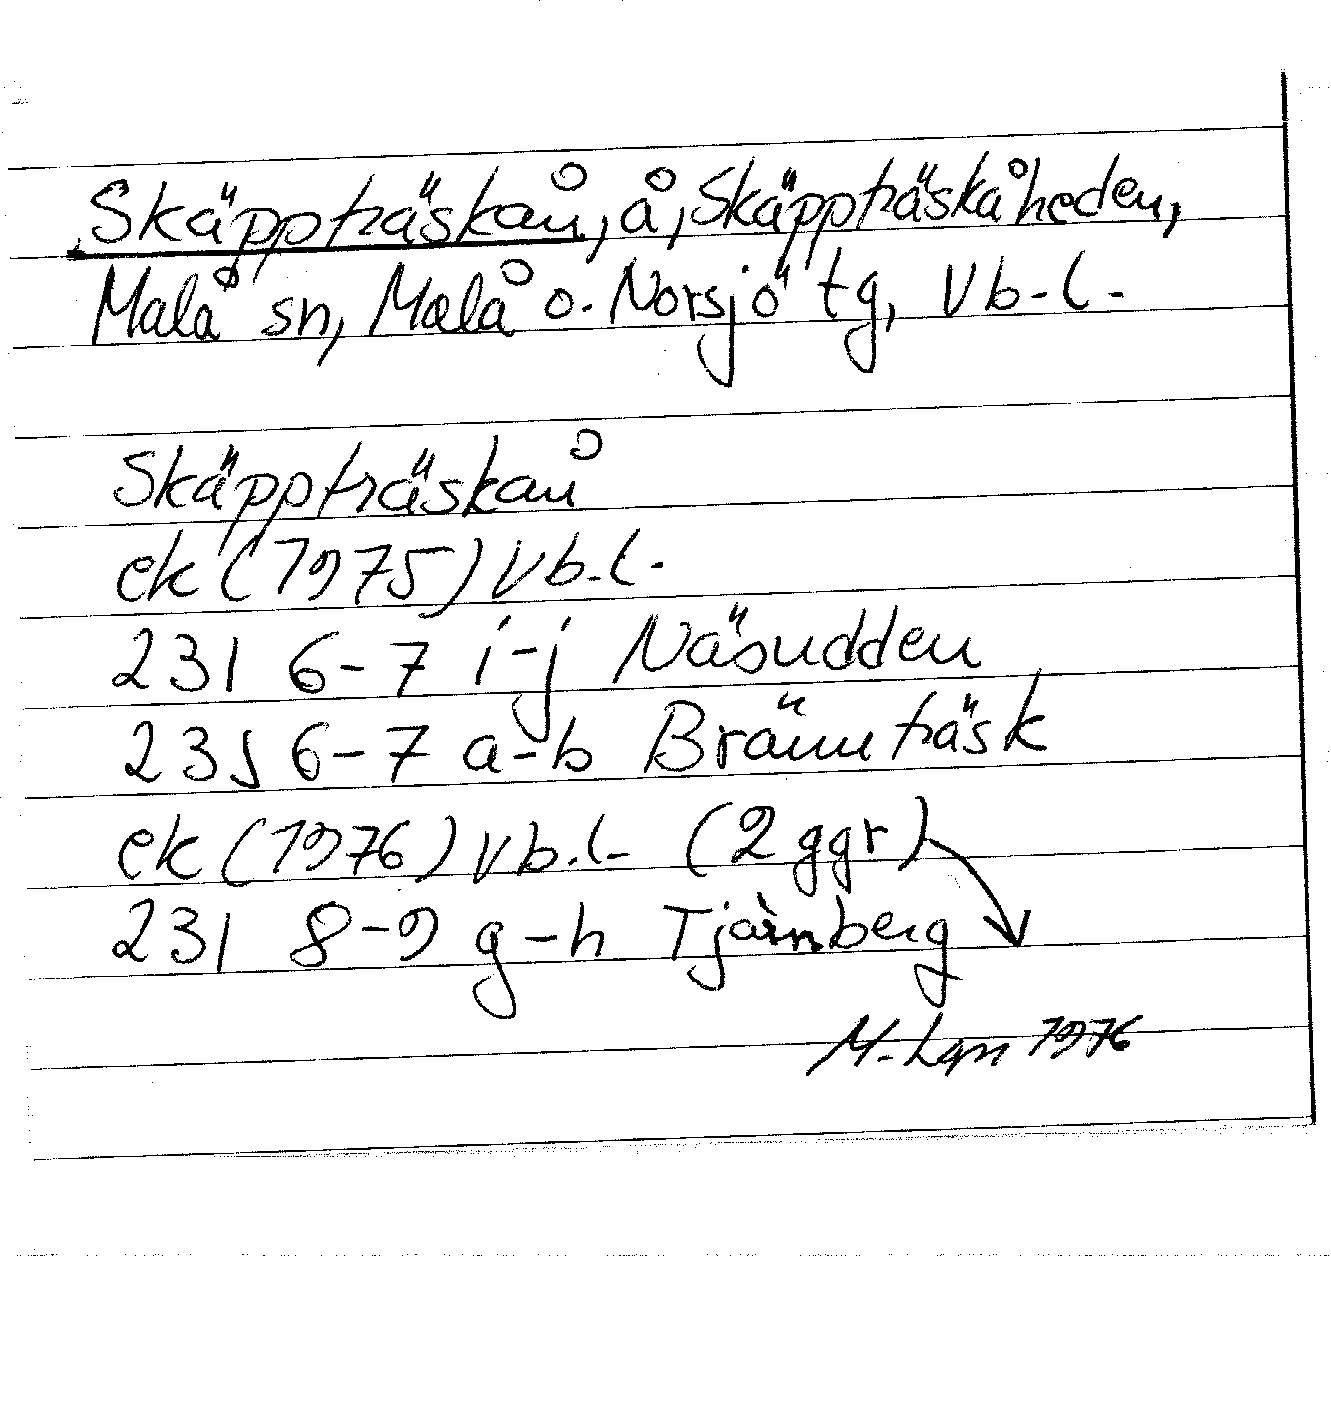 Skäppträskån, å, Skäppträskåheden,
Malå sn, Malå o. Norsjö tg, Vb.l.
Skäppträskån
ek (1975) Vb.l.
23I 6-7 i-j Näsudden
23J 6-7 a-b Brännträsk
ek (1976) Vb.l. (2 ggr)
23I 8-9 g-h Tjärnberg
M. Lgn 1976